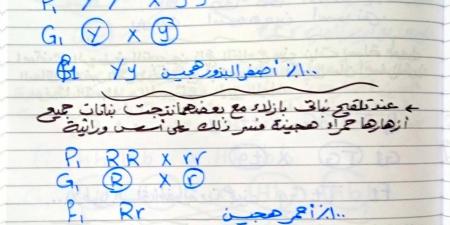 G₁ Ⓨ X ⓨ
F1 Yy ١٠٠٪ أصفر البذور هجين
← عند تلقيح نباتى بازلاء مع بعضهما نتجت نباتات جميع
أزهارها حمراء هجينة فسر ذلك على أسس وراثية
P₁ RR X rr
G₁ Ⓡ X ⓡ
F₁ Rr ١٠٠٪ أحمر هجين